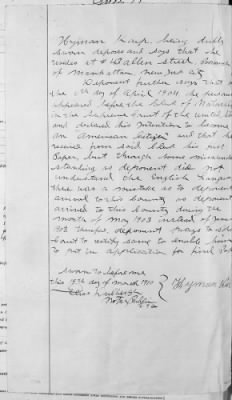 Hyman Karp, being duly
sworn deposes and says that he
resides at # 42 Allen Street Borough
of Manhattan, New York City
Deponent further says that on
the day of April 1904, he personally
appeared before the Clerk of
in the Supreme Court of the
and declared his intention to become
an American Citizen and that he
received from said Clerk his first
Paper, but through some misunder
standing as deponent did not
understand the English language
there was a mistake as to deponents
arrival to this country as deponent
arrived to this country during the
month of May 1903 instead of
deponent prays to
to rectify same to enable him
to put in application for final Paper
Sworn to before me
this 15th day of March 1910
Hyman